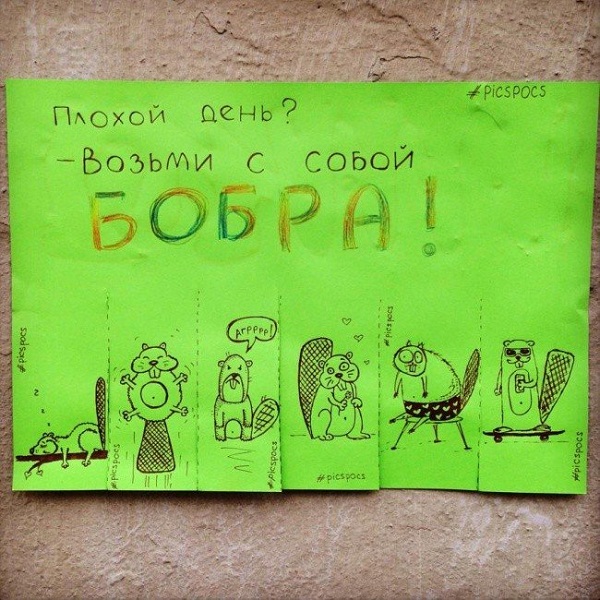 #picspocs
Плохой день?
-Возьми с собой
БОБРА!
#picspocs
#picspocs
Arpppp!
#picspocs
#picspocs
#picspocs
#picspocs